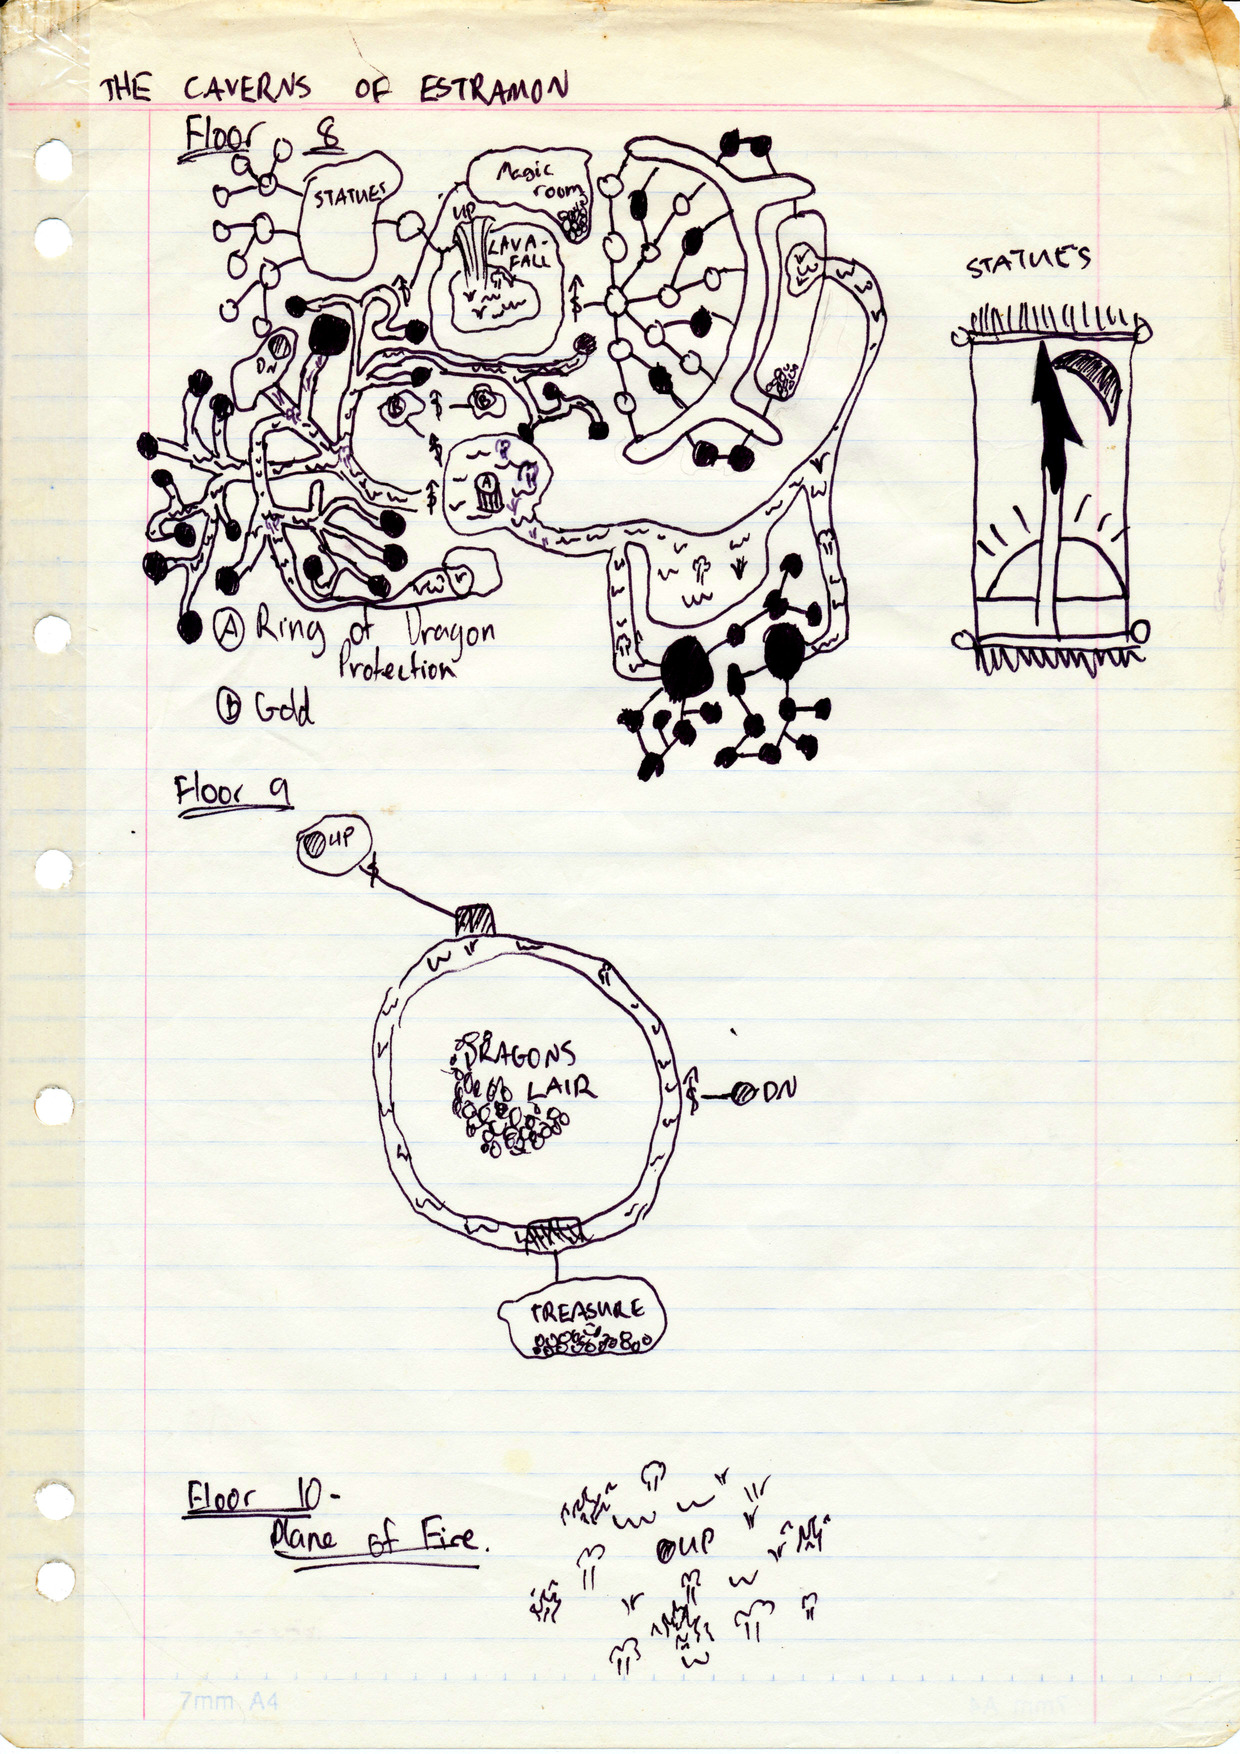 THE CAVERNS OF ESTRAMON
Floor 8
STATUES
Magic
room
UP
LAVA-
FALL
STATUES
DN
B
B
A
A Ring of Dragon
Protection
B Gold
Floor 9
UP
DRAGONS
LAIR
DN
TREASURE
Floor 10-
Plane of Fire.
UP
7mm A4